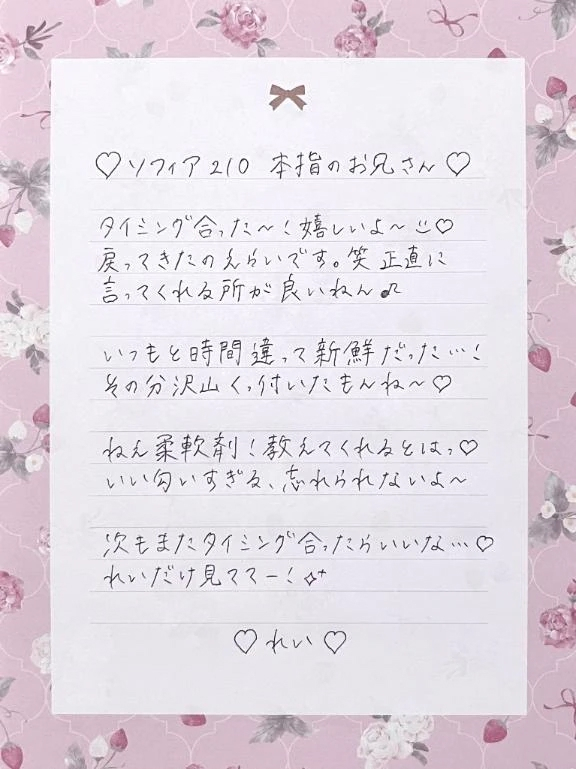 ♡ソフィア210 本指のお兄さん♡
タイミング合った〜！嬉しいよ〜☺♡
戻ってきたのえらいです。笑 正直に
言ってくれる所が良いねん♪
いつもと時間違って新鮮だった…！
その分沢山くっ付いたもんね〜♡
ねえ柔軟剤！教えてくれるとはっ♡
いい匂いすぎる、忘れられないよ〜
次もまたタイミング合ったらいいな…♡
れいだけ見ててー！✧⁺
♡れい♡